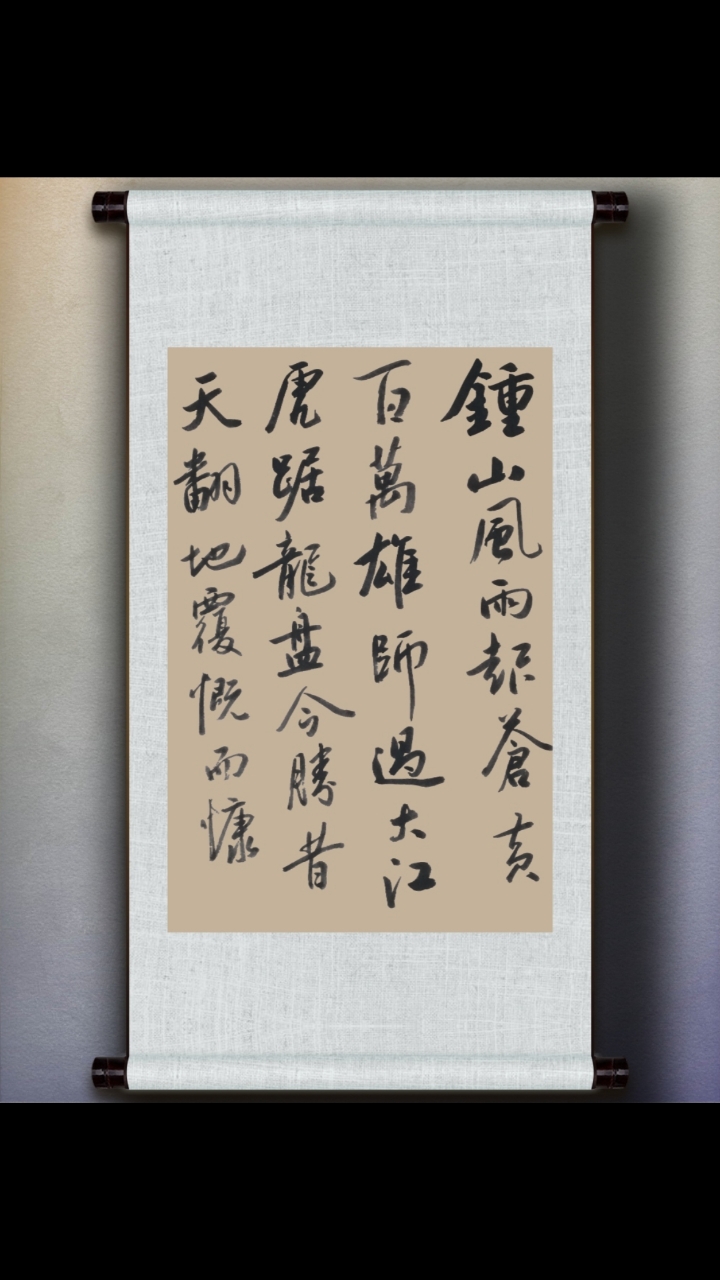 鍾山風雨起蒼黃
百萬雄師過大江
虎踞龍盤今勝昔
天翻地覆慨而慷